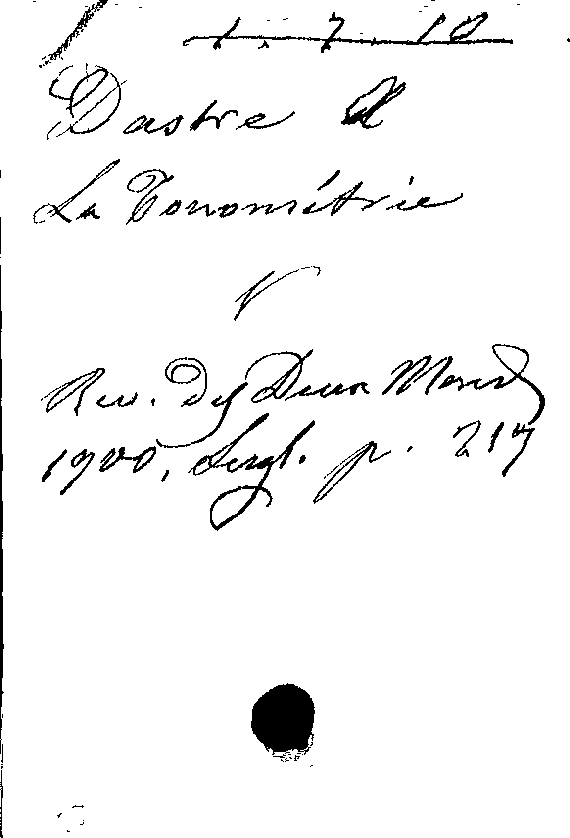 1. 7. 10
Dastre A
La Tonométrie
Rev. des Deux Mondes
1900, Sept. p. 217